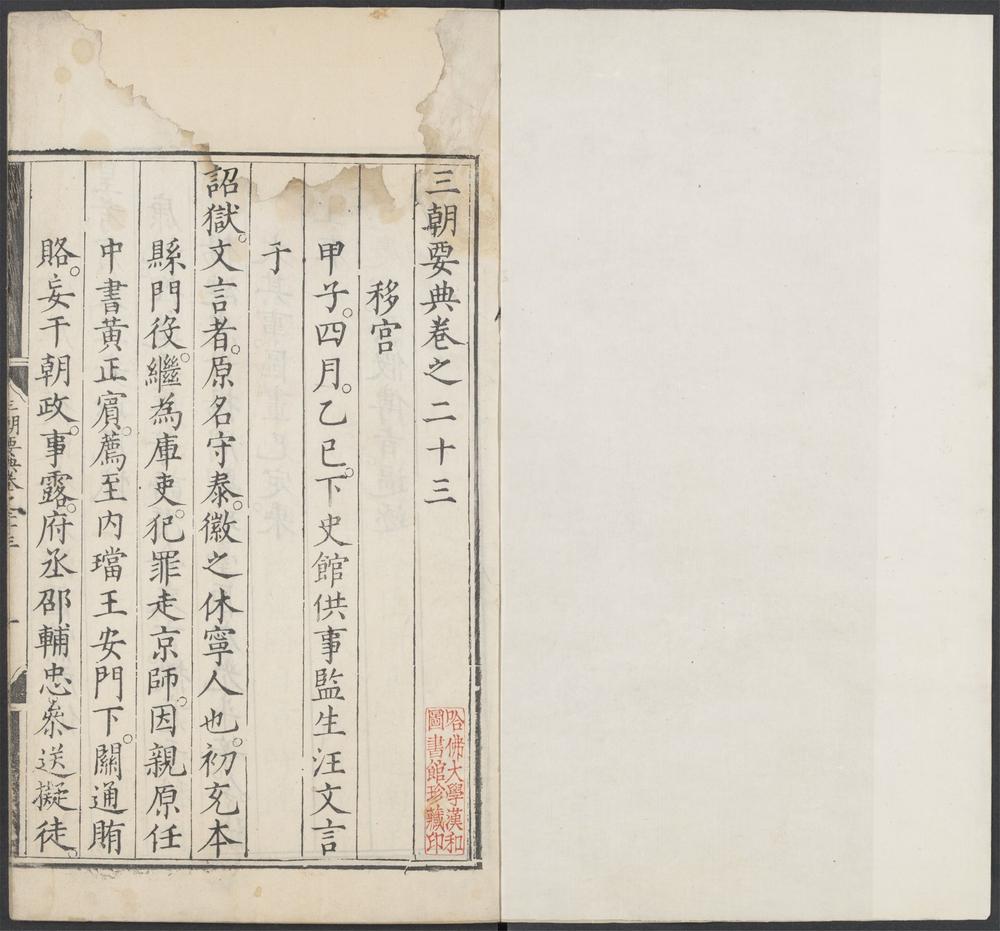 三朝要典卷之二十三
移宮
甲子。四月。乙巳。下史館供事監生汪文言
于
詔獄。文言者。原名守泰。徽之休寧人也。初充本
縣門役。繼為庫吏。犯罪走京師。因親原任
中書黃正賓。薦至內璫王安門下。關通賄
賂。妄干朝政。事露。府丞邵輔忠叅送擬徒。
三朝要典卷之二十三
一
哈佛大學漢和
圖書館珍藏印